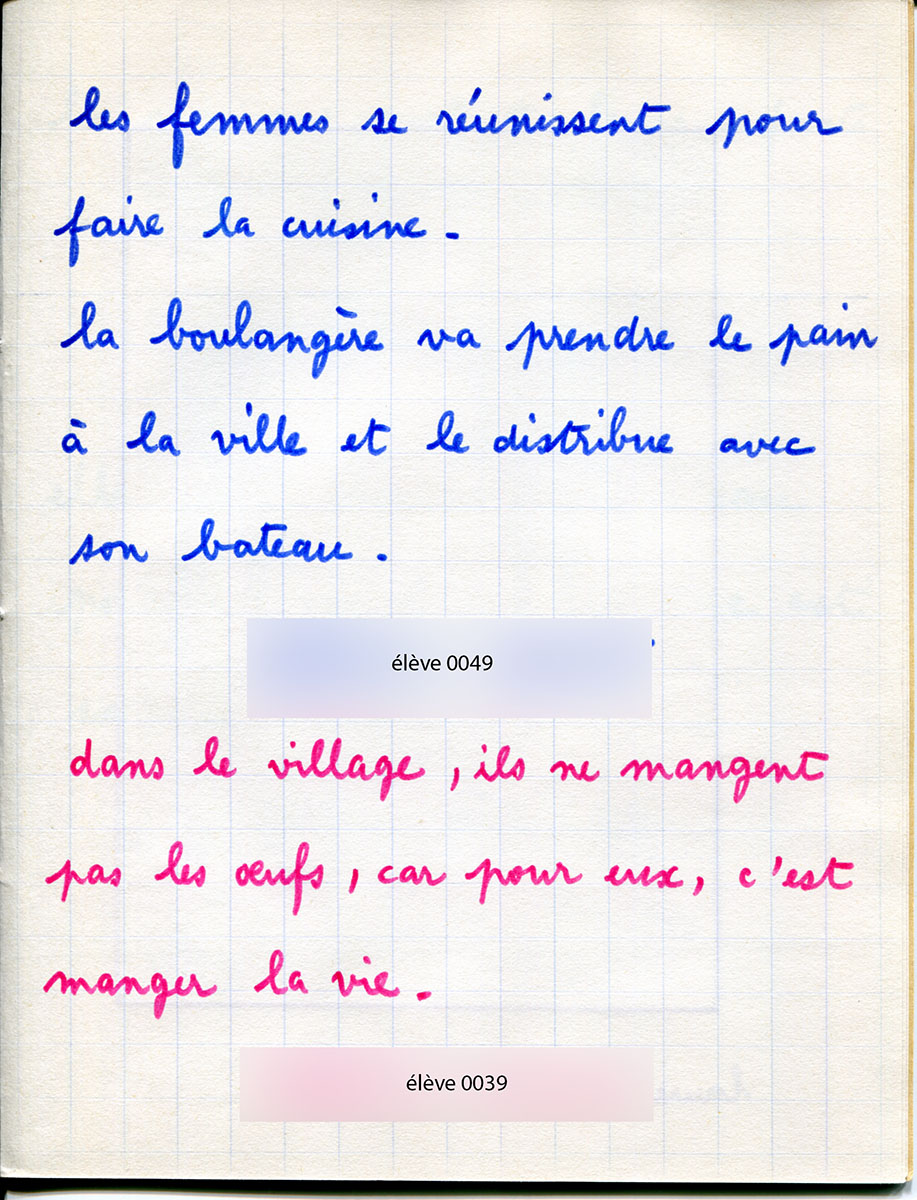 les femmes se réunissent pour
faire la cuisine.
la boulangère va prendre le pain
à la ville et le distribue avec
son bateau.
élève 0049
dans le village, ils ne mangent
pas les œufs, car pour eux, c'est
manger la vie.
élève 0039